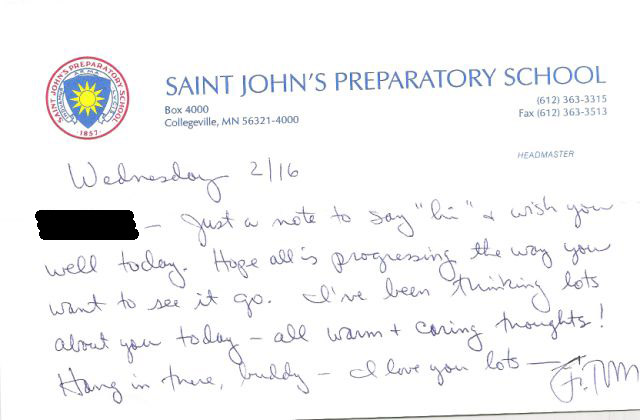 SAINT JOHN'S PREPARATORY SCHOOL
SAINT JOHN'S PREPARATORY SCHOOL
1857
Box 4000
Collegeville, MN 56321-4000
(612) 363-3315
Fax (612) 363-3513
HEADMASTER
Wednesday 2/16
— Just a note to say "hi" & wish you
well today. Hope all is progressing the way you
want to see it go. I've been thinking lots
about you today – all warm + caring thoughts!
Hang in there, buddy – I love you lots —